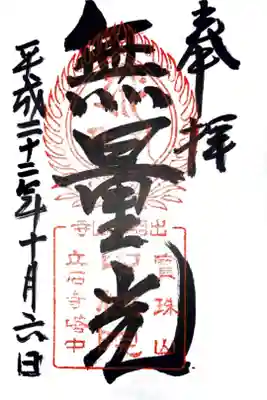 奉拝
無量光
平成二十二年十月六日
宝珠山
立石寺塔中